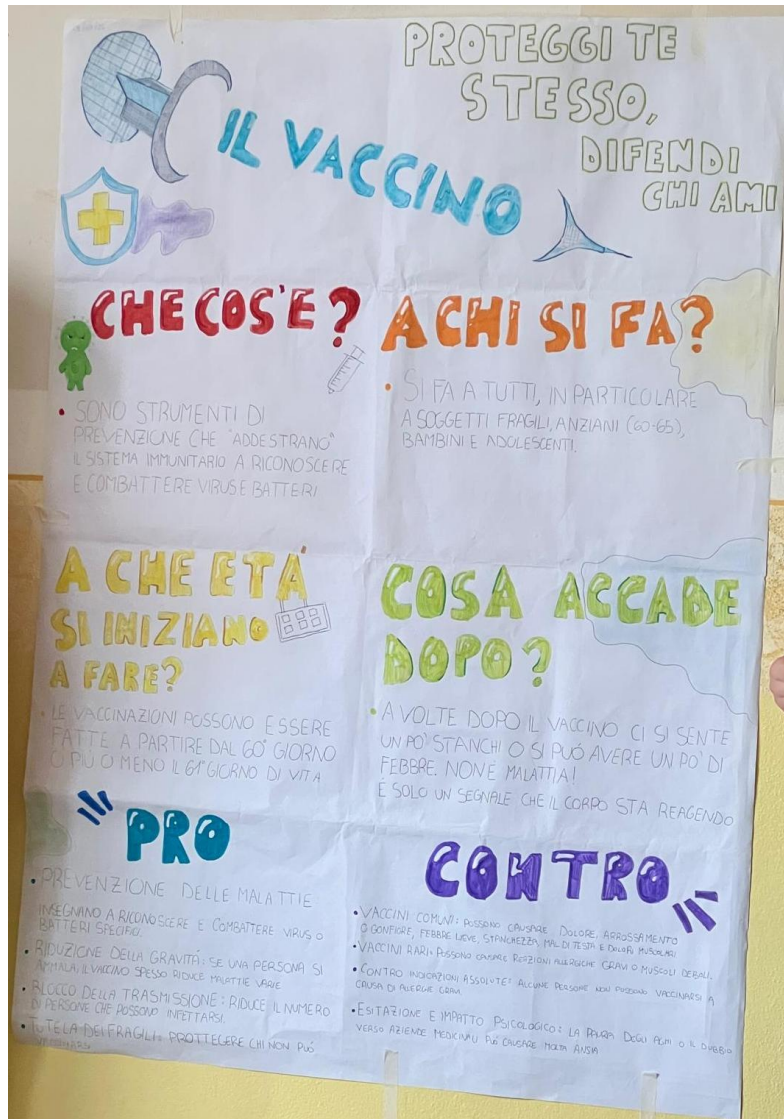 PROTEGGI TE
STESSO,
DIFENDI
CHI AMI
IL VACCINO
CHE COS'E?
• SONO STRUMENTI DI
PREVENZIONE CHE "ADDESTRANO"
IL SISTEMA IMMUNITARIO A RICONOSCERE
E COMBATTERE VIRUS E BATTERI
A CHI SI FA?
• SI FA A TUTTI, IN PARTICOLARE
A SOGGETTI FRAGILI, ANZIANI (60-65),
BAMBINI E ADOLESCENTI.
A CHE ETÁ
SI INIZIANO
A FARE?
• LE VACCINAZIONI POSSONO ESSERE
FATTE A PARTIRE DAL 60° GIORNO
O PIÙ O MENO IL 61° GIORNO DI VITA
COSA ACCADE
DOPO?
• A VOLTE DOPO IL VACCINO CI SI SENTE
UN PO' STANCHI O SI PUÓ AVERE UN PO' DI
FEBBRE. NON È MALATTIA!
È SOLO UN SEGNALE CHE IL CORPO STA REAGENDO
PRO
• PREVENZIONE DELLE MALATTIE
INSEGNANO A RICONOSCERE E COMBATTERE VIRUS O
BATTERI SPECIFICI.
• RIDUZIONE DELLA GRAVITÁ: SE UNA PERSONA SI
AMMALA, IL VACCINO SPESSO RIDUCE MALATTIE VARIE
• BLOCCO DELLA TRASMISSIONE: RIDUCE IL NUMERO
DI PERSONE CHE POSSONO INFETTARSI.
• TUTELA DEI FRAGILI: PROTTEGERE CHI NON PUÓ
CONTRO
• VACCINI COMUNI: POSSONO CAUSARE DOLORE, ARROSSAMENTO
O GONFIORE, FEBBRE LIEVE, STANCHEZZA, MAL DI TESTA E DOLORI MUSCOLARI
• VACCINI RARI: POSSONO CAUSARE REAZIONI ALLERGICHE GRAVI O MUSCOLI DEBOLI.
• CONTRO INDICAZIONI ASSOLUTE: ALCUNE PERSONE NON POSSONO VACCINARSI A
CAUSA DI ALLERGIE GRAVI
• ESITAZIONE E IMPATTO PSICOLOGICO: LA PAURA DEGLI AGHI O IL DUBBIO
VERSO AZIENDE MEDICINALI PUÓ CAUSARE MOLTA ANSIA